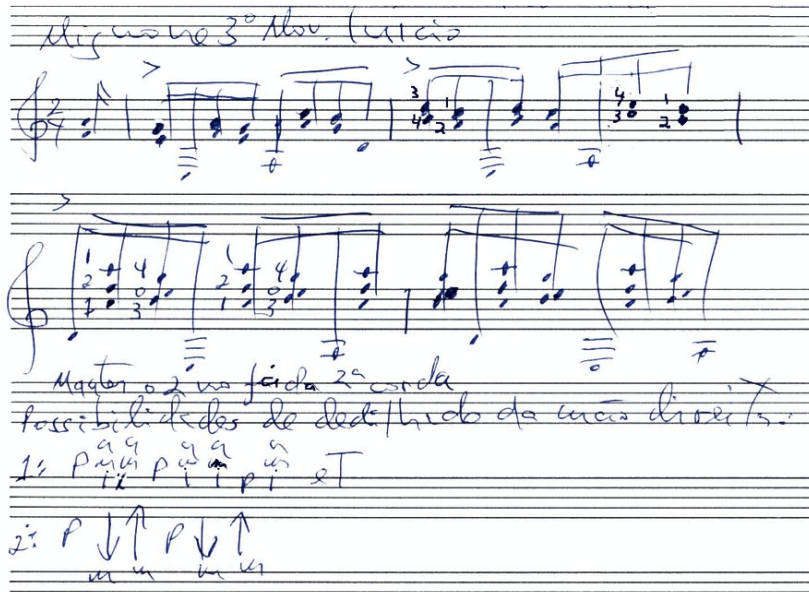 Mignone 3º Mov. Início
Manter o 2 no fá da 2ª corda
Possibilidades de dedilhado da mão direita:
1ª: P a m i a m i P a m i a m i P a m i eT
2ª: P m m P m m